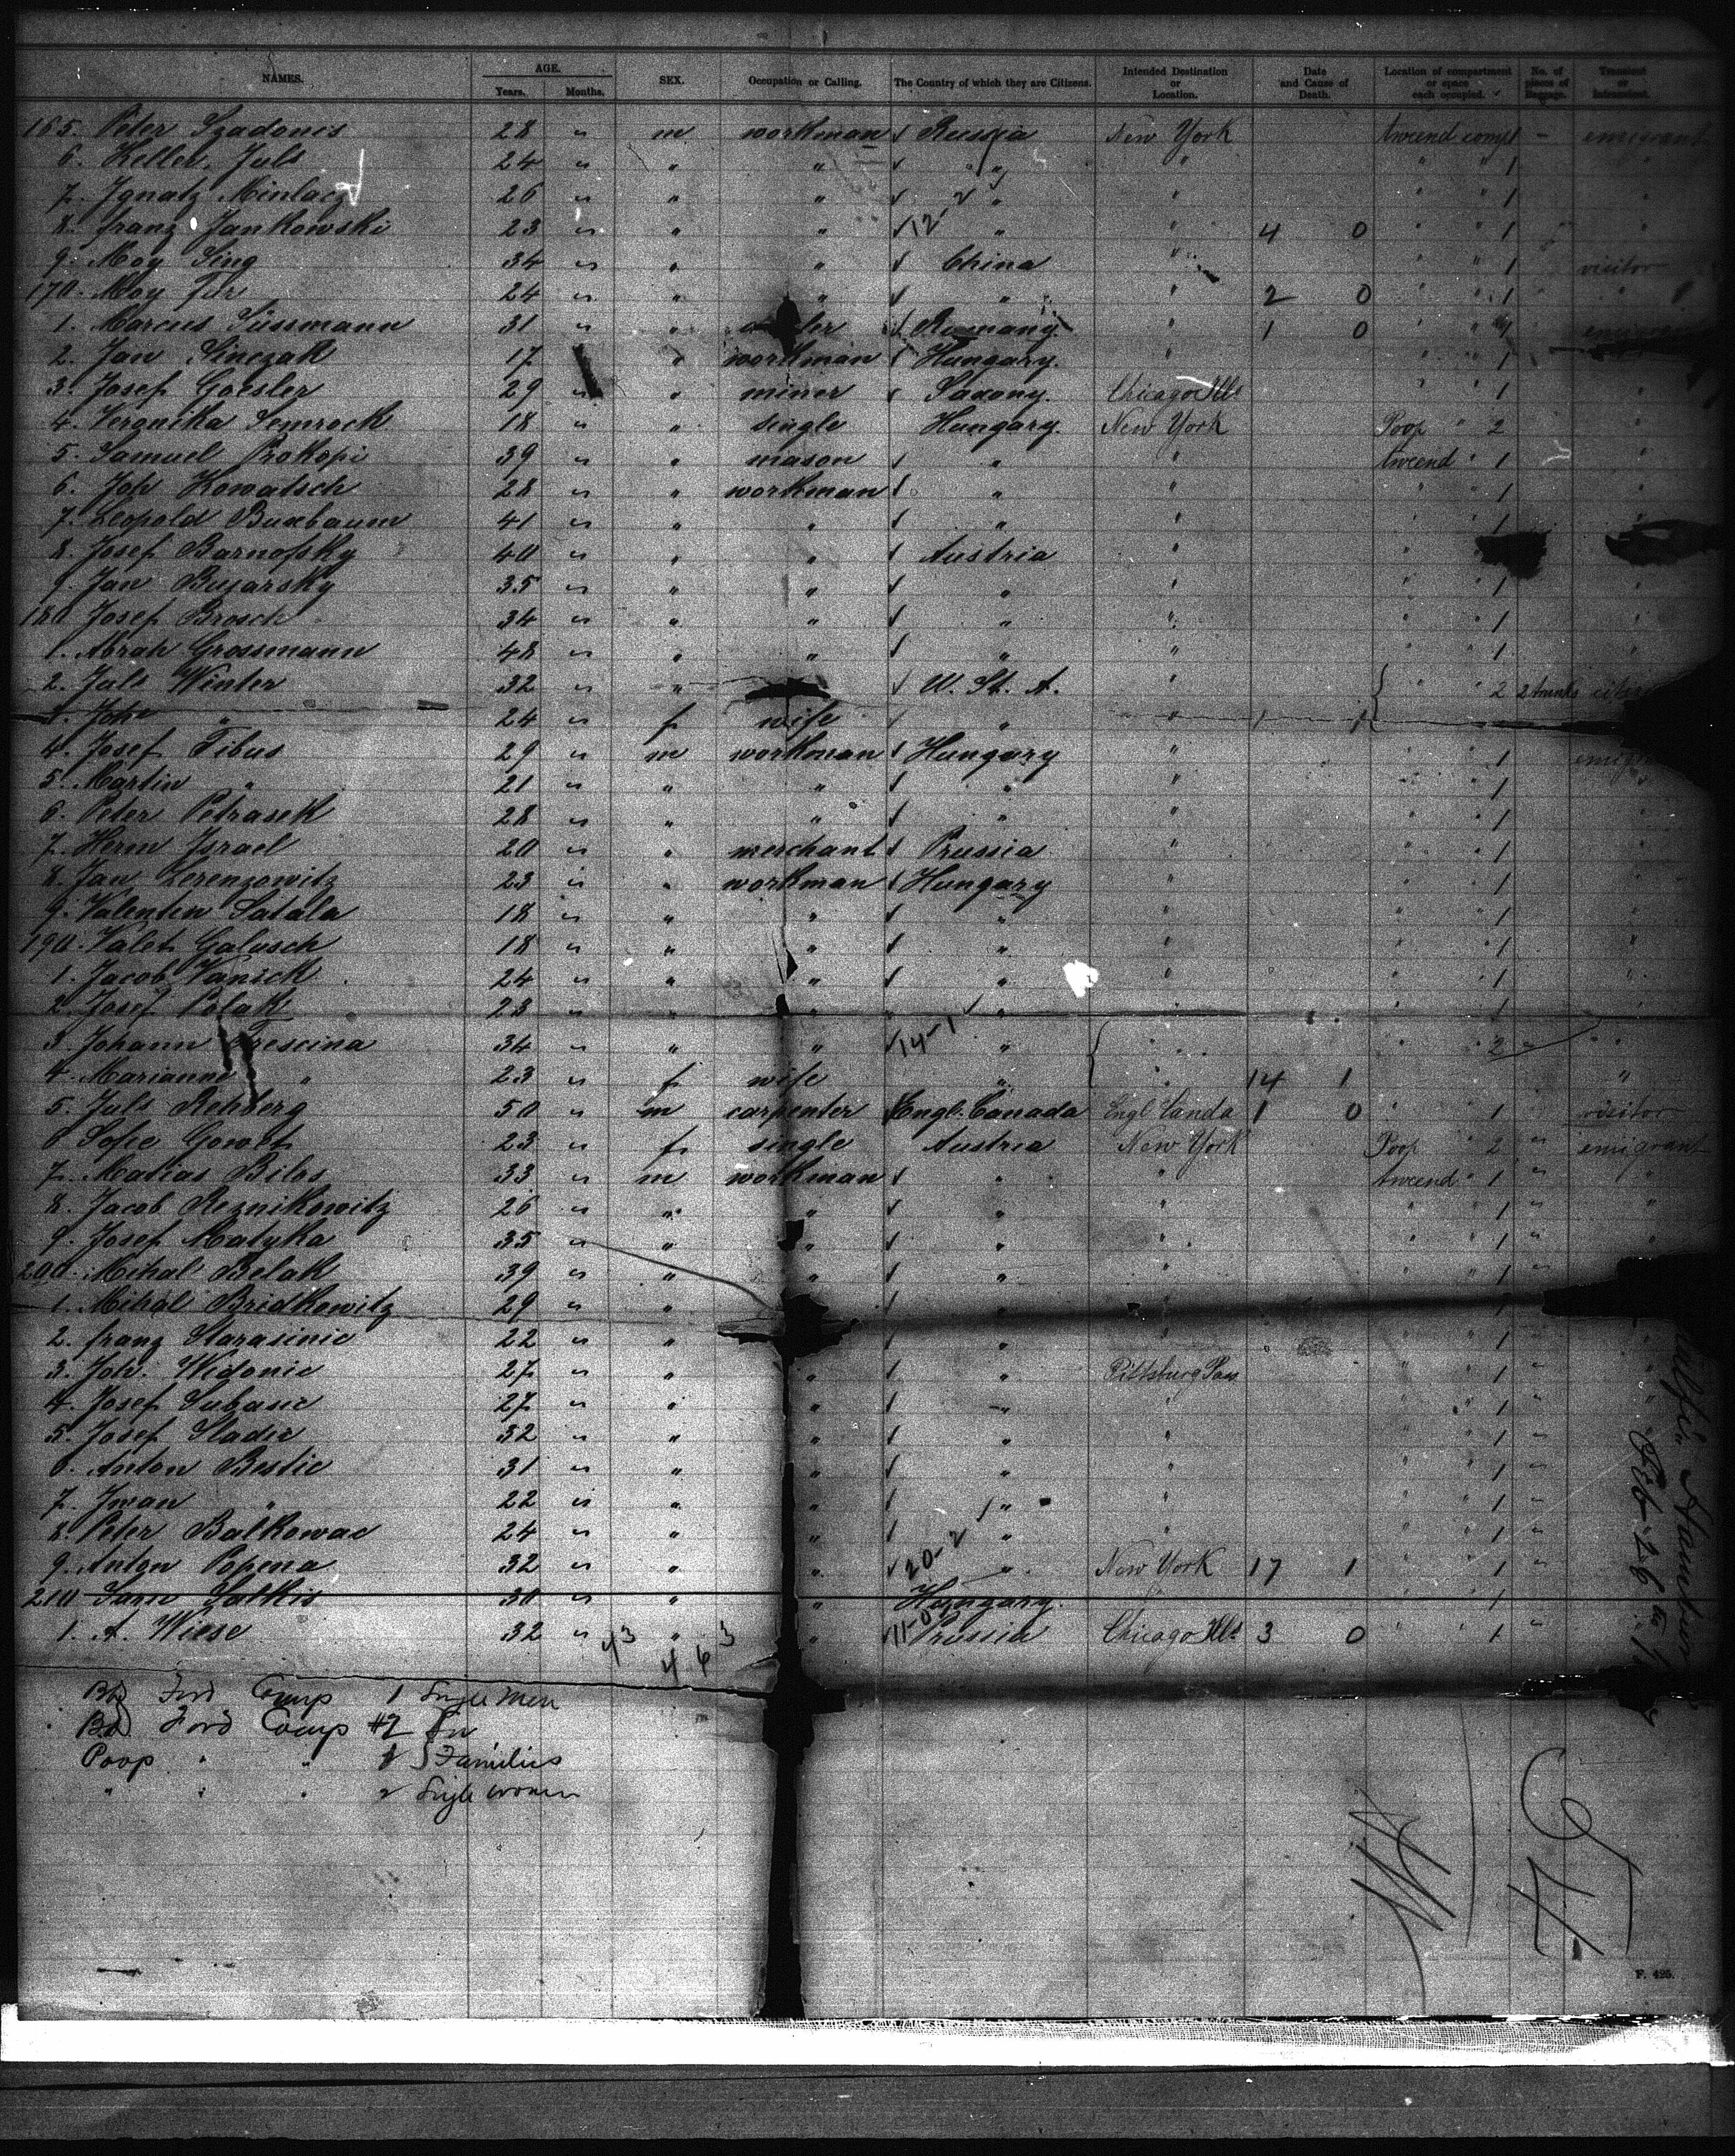 NAMES. AGE. Years. Months. SEX. Occupation or Calling. The Country of which they are Citizens. Intended Destination or Location. Date and Cause of Death. Location of compartment or space each occupied. No. of pieces of Baggage. Transient or intransient.
165. Peter Szadonis 28 " m workman Russia New York tweend comp 1 - emigrant
6. Keller, Juls 24 " " " " " " " 1
7. Ignatz Minlacz 26 " " " " " " " 1 "
8. franz Jankowski 23 " " " 12-2 " " 4 0 " " 1 "
9. Moy Sing 34 " " " China " " " 1 visitor
170. Moy Jur 24 " " " " " 2 0 " " 1 "
1. Marcus Süssmann 31 " " Romany. " 1 0 " "
2. Jan Sinczak 17 " workman Hungary. " " " 1
3. Josef Goesler 29 " " miner Saxony. Chicago Ills " " 1
4. Veronika Semrock 18 " " single Hungary. New York Poop " 2 "
5. Samuel Prokopi 39 " " mason " " tweend " 1 "
6. Joh Kowatsch 28 " " workman " " " " 1 "
7. Leopold Buxbaum 41 " " " " " " " 1 "
8. Josef Barnofsky 40 " " " Austria " "
9. Jan Buzarsky 35 " " " " " " " 1 "
180 Josef Brosch 34 " " " " " " " 1 "
1. Abrah Grossmann 48 " " " " " " " 1 "
2. Juls Winter 32 " " U. St. A. " " " 2 2 trunks
3. Johe " 24 " f wife " " 1 1
4. Josef Tibus 29 " m workman Hungary " " " 1
5. Martin " 21 " " " " " " " 1 "
6. Peter Petrasek 28 " " " " " " " 1 "
7. Herm Israel 20 " " merchant Prussia " " " 1 "
8. Jan Lorenzowitz 23 " " workman Hungary " " " 1 "
9. Valentin Satala 18 " " " " " " " 1 "
190. Valet Galusch 18 " " " " " " " 1 "
1. Jacob Vanick 24 " " " " " " " 1 "
2. Josef Polak 23 " " " " " " " 1 "
3. Johann Trescina 34 " " " 14-1 " " " " 2 " "
4. Marianne " 23 " f wife " " 14 1 "
5. Juls Rehberg 50 " m carpenter Engl. Canada Engl Canda 1 0 " " 1 visitor
6 Sofie Gowet 23 " f single Austria New York Poop " 2 " emigrant
7. Matias Bilos 33 " m workman " " tweend " 1 " "
8. Jacob Reznikowitz 26 " " " " " " " 1 " "
9. Josef Matyka 35 " " " " " " " 1 " "
200. Mihal Belak 39 " " " " " " " 1 "
1. Mihal Bridkowitz 29 " " " "
2. franz Starasinic 22 " " " " " " 1 "
3. Joh. Widonic 27 " " " " Pittsburg Pan " " 1 " "
4. Josef Subasic 27 " " " " " " " 1 " "
5. Josef Sladic 32 " " " " " " " 1 "
6. Anton Bestic 31 " " " " " " " 1 "
7. Iwan " 22 " " " " " " " 1 "
8. Peter Balkowac 24 " " " " " " " 1 "
9. Anton Popena 32 " " " 20-2 " New York 17 1 " " 1 "
210 30 " " Hungary. " " " 1
1. A. Wiese 32 " " " 11-0 Prussia Chicago Ills 3 0 " " 1 "
43 46 3
Comp 1 Single Men
Comp #2
Poop " " 1 Families
" " " 2 Single women
Feb. 26
F. 425.